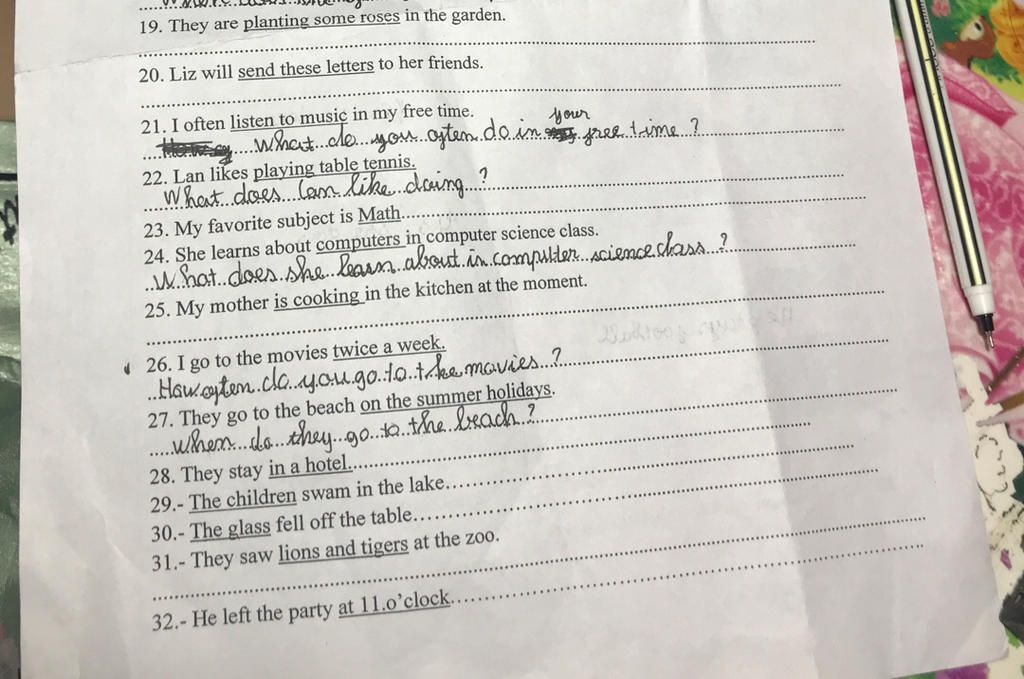 19. They are planting some roses in the garden.
20. Liz will send these letters to her friends.
21. I often listen to music in my free time.
your
What do you often do in free time ?
22. Lan likes playing table tennis.
What does Lan like doing ?
23. My favorite subject is Math
24. She learns about computers in computer science class.
What does she learn about in computer science class ?
25. My mother is cooking in the kitchen at the moment.
26. I go to the movies twice a week.
How often do you go to the movies ?
27. They go to the beach on the summer holidays.
when do they go to the beach ?
28. They stay in a hotel.
29.- The children swam in the lake
30.- The glass fell off the table
31.- They saw lions and tigers at the zoo.
32.- He left the party at 11.o'clock